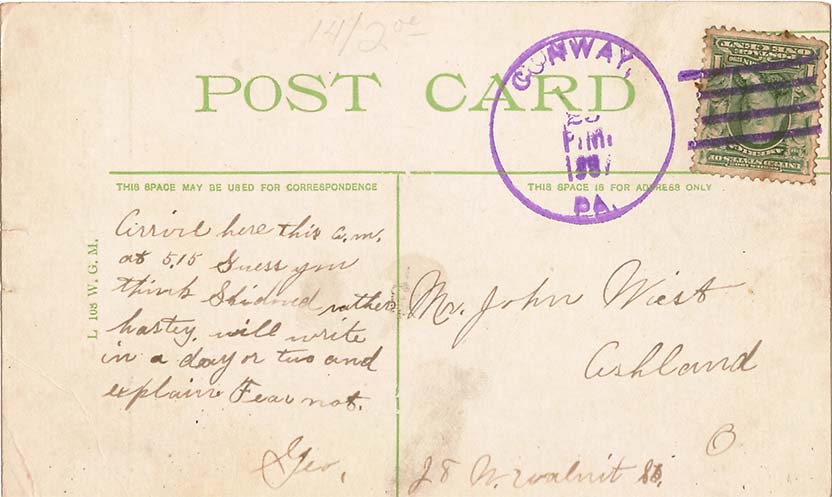 14/2oe
POST CARD
CONWAY,
P.M.
1907
PA.
ONE CENT
THIS SPACE MAY BE USED FOR CORRESPONDENCE
THIS SPACE IS FOR ADDRESS ONLY
L 108 W. G. M.
Arrivd here this a.m.
at 5.15 Guess you
think Skidned rather
hastey. will write
in a day or two and
explain Fear not.
Geo,
Mr. John Wiest
Ashland
O
28 N. Walnut St.